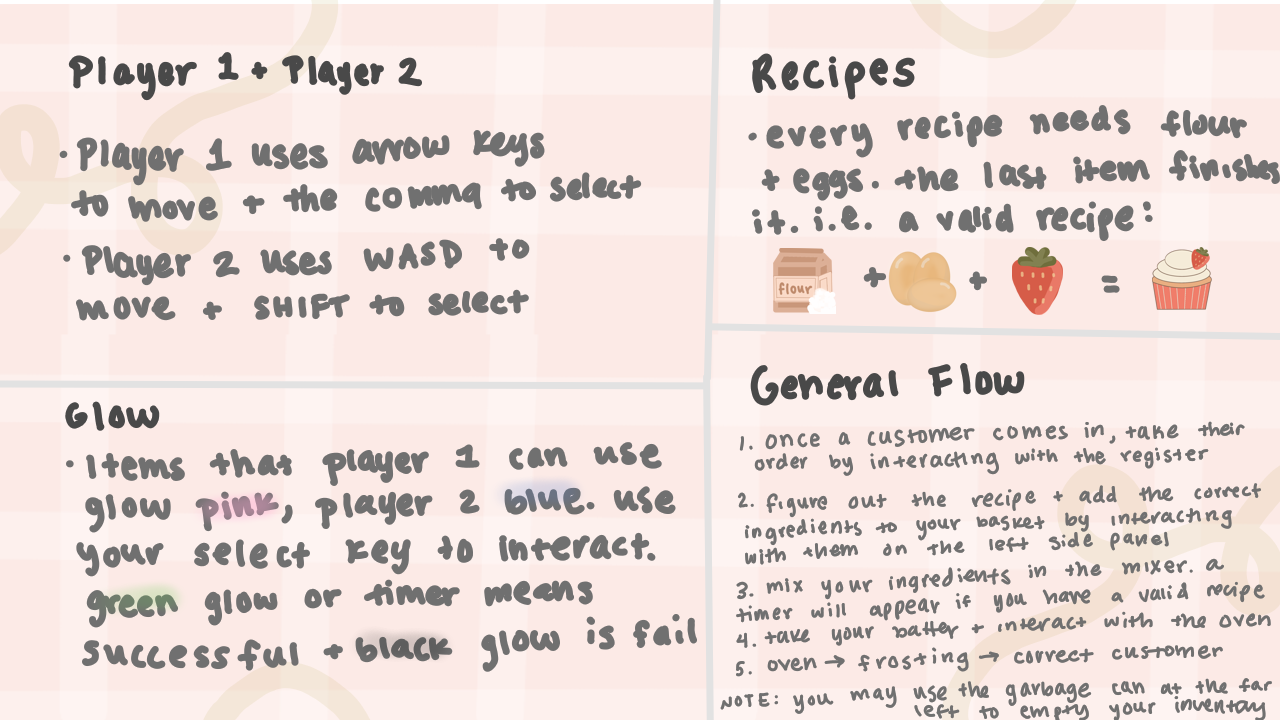 Player 1 + Player 2
• Player 1 uses arrow keys
to move + the comma to select
• Player 2 uses WASD to
move + SHIFT to select
Glow
• Items that player 1 can use
glow pink, player 2 blue. use
your select key to interact.
green glow or timer means
successful + black glow is fail
Recipes
• every recipe needs flour
+ eggs. the last item finishes
it. i.e. a valid recipe:
flour
+ + =
General Flow
1. once a customer comes in, take their
order by interacting with the register
2. figure out the recipe + add the correct
ingredients to your basket by interacting
with them on the left side panel
3. mix your ingredients in the mixer. a
timer will appear if you have a valid recipe
4. take your batter + interact with the oven
5. oven → frosting → correct customer
NOTE: you may use the garbage can at the far
left to empty your inventory